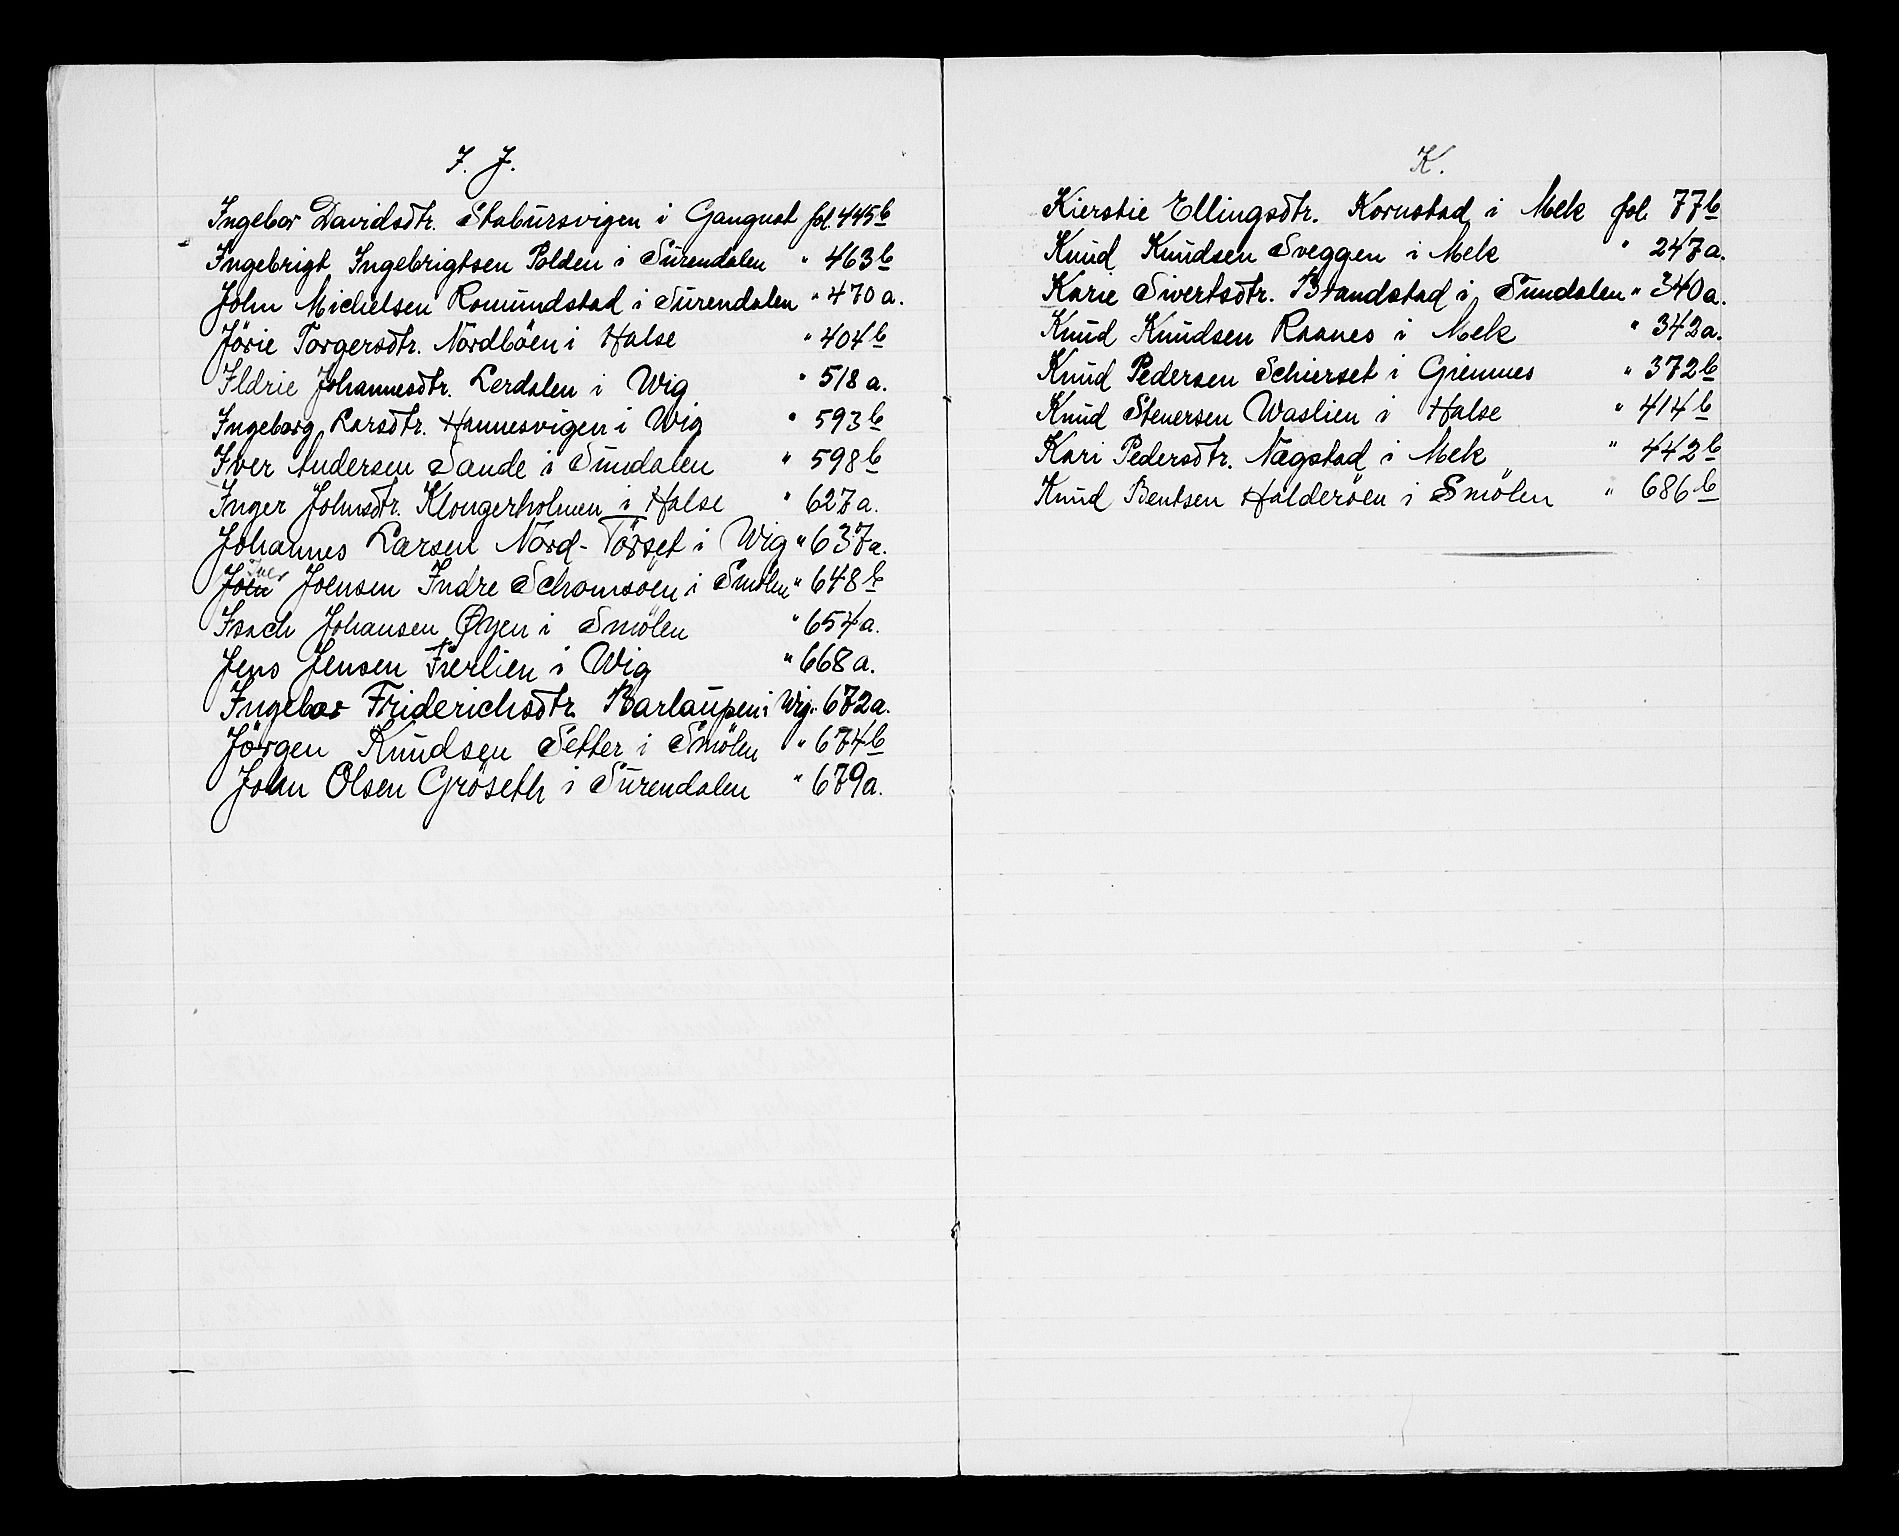 I. J.
Ingebor Davidsdtr. Stabursvigen i Gangnat fol. 445b
Ingebrigt Ingebrigtsen Polden i Surendalen " 463b
John Michelsen Romundstad i Surendalen " 470a.
Jörie Torgersdtr. Nordböen i Halse " 404b
Ildrie Johannesdtr. Lerdalen i Wig " 518a.
Ingeborg Larsdtr. Hannesvigen i Wig " 593b
Iver Andersen Sande i Sundalen " 598b
Inger Johnsdtr. Klongerholmen i Halse " 627a.
Johannes Larsen Nord-Törset i Wig " 637a.
Joen Iver Joensen Indre Schomsoen i Smölen " 648b
Isach Johansen Øyen i Smölen " 654a.
Jens Jensen Fierlien i Wig " 668a.
Ingebor Friderichsdtr. Barlaupen i Wig " 672a.
Jörgen Knudsen Setter i Smölen " 674b
John Olsen Gröseth i Surendalen " 679a.
K.
Kierstie Ellingsdtr. Kornstad i Mek fol. 77b
Knud Knudsen Sveggen i Mek " 247a.
Karie Sivertsdtr. Brandstad i Sundalen " 340a.
Knud Knudsen Raanes i Mek " 342a.
Knud Pedersen Schierset i Giemnes " 372b
Knud Stenersen Waslien i Halse " 414b
Kari Pedersdtr. Nagstad i Mek " 442b
Knud Bentsen Halderöen i Smölen " 686b